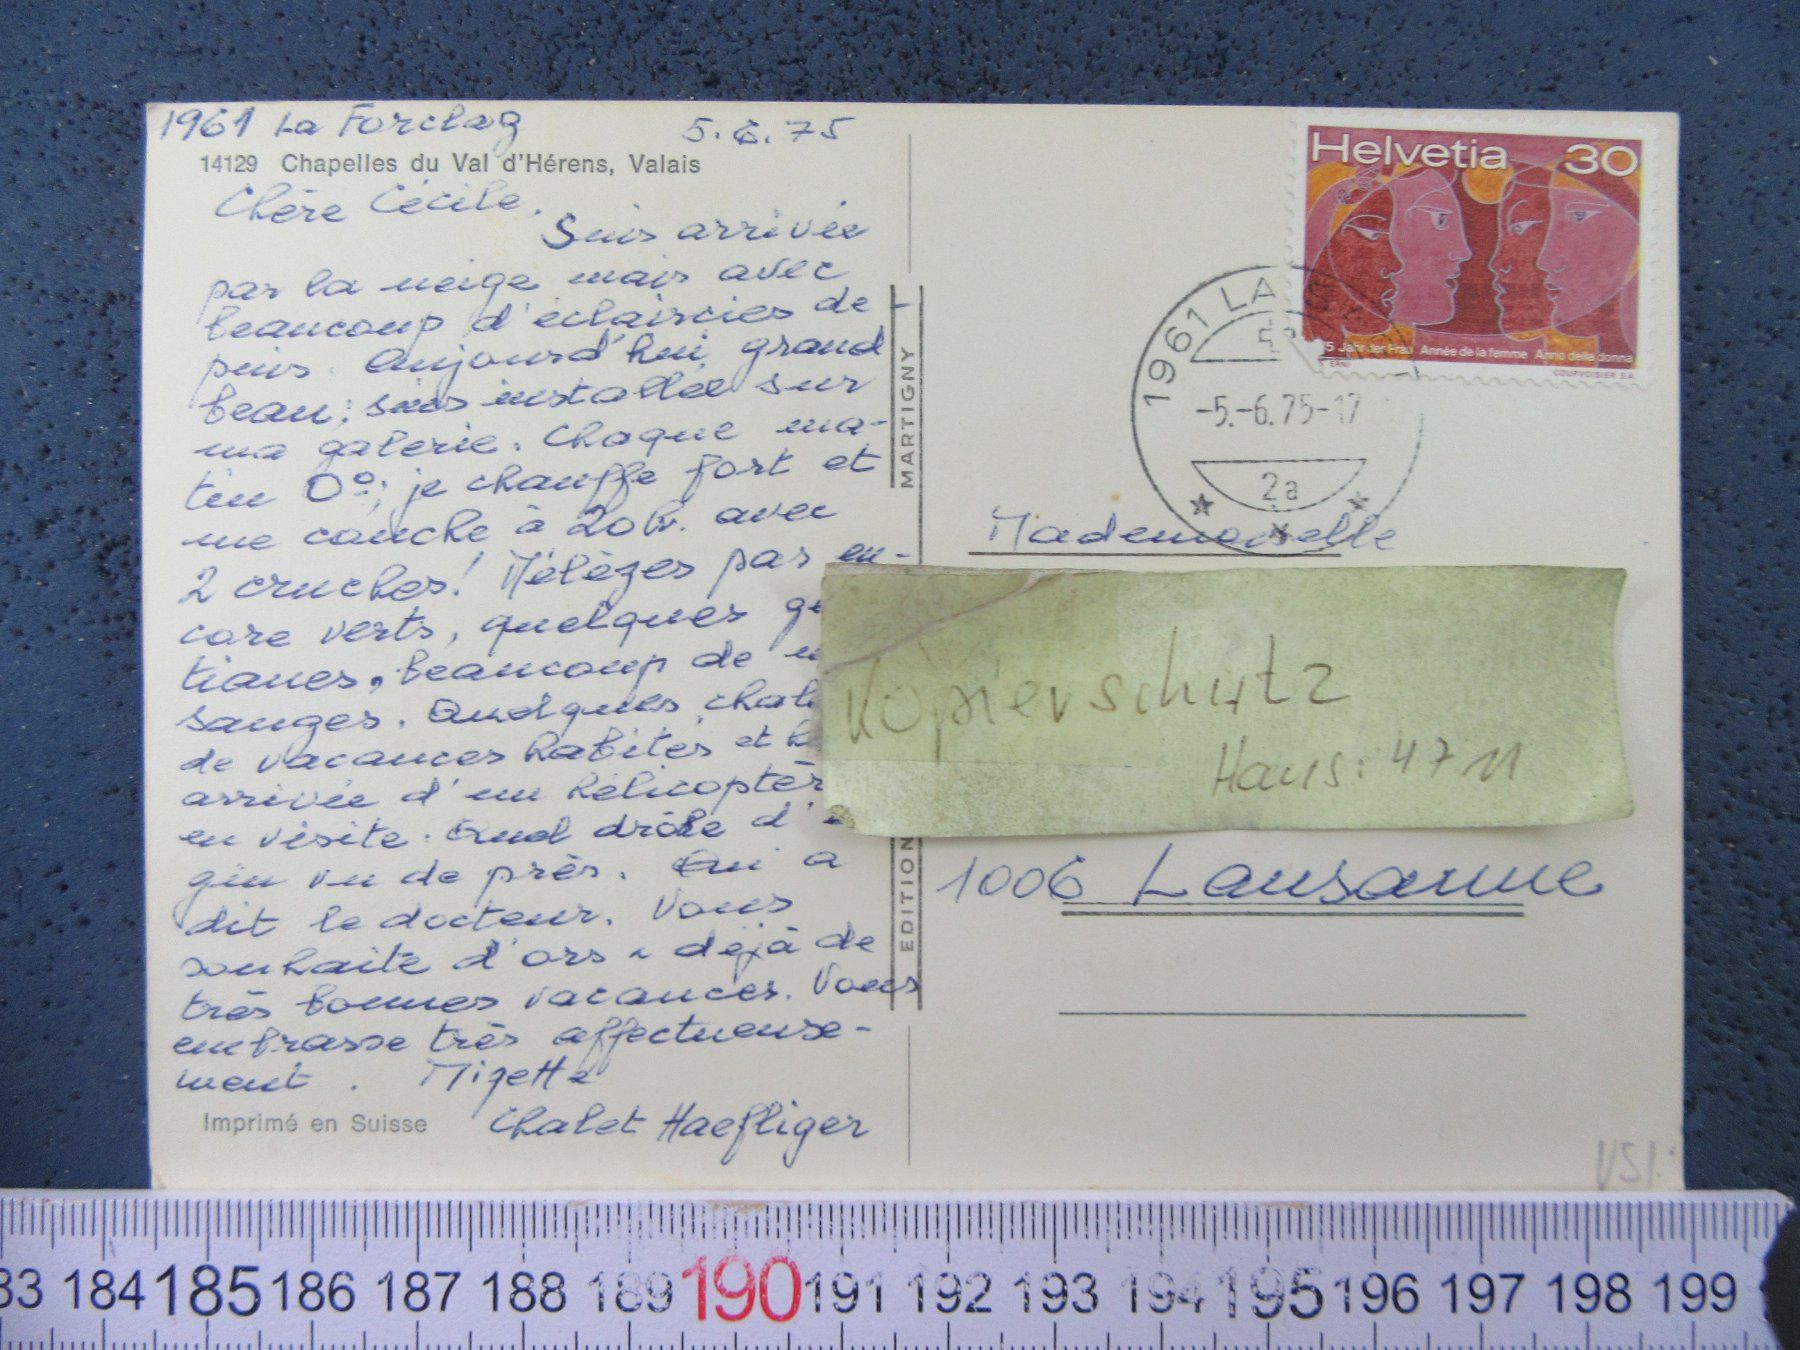 1961 La Forclaz 5.6.75
14129 Chapelles du Val d'Hérens, Valais
Chère Cécile.
Suis arrivée
par la neige mais avec
beaucoup d'éclaircies de-
puis. Aujourd'hui grand
beau; suis installée sur
ma galerie. Chaque ma-
tin 0°; je chauffe fort et
me couche à 20 h. avec
2 cruches! Mélèzes pas en-
core verts, quelques
tianes, beaucoup de
sanges. Quelques
de vacances habités et
arrivée d'un hélicoptèr
en visite. Quel drôle d'
gin vu de près. Qui a
dit le docteur. Vous
souhaite d'ors & déjà de
très bonnes vacances. Vous
embrasse très affectueuse-
ment. Mizette
Chalet Haefliger
Imprimé en Suisse
MARTIGNY
EDITION
Helvetia 30
75 Jahr der Frau Année de la femme Anno della donna
ERNI
COURVOISIER S.A.
1961 LA
-5.-6.75-17
2a
Mademoiselle
Kopierschutz
Haus: 4711
1006 Lausanne
VS1.
83 184 185 186 187 188 189 190 191 192 193 194 195 196 197 198 199